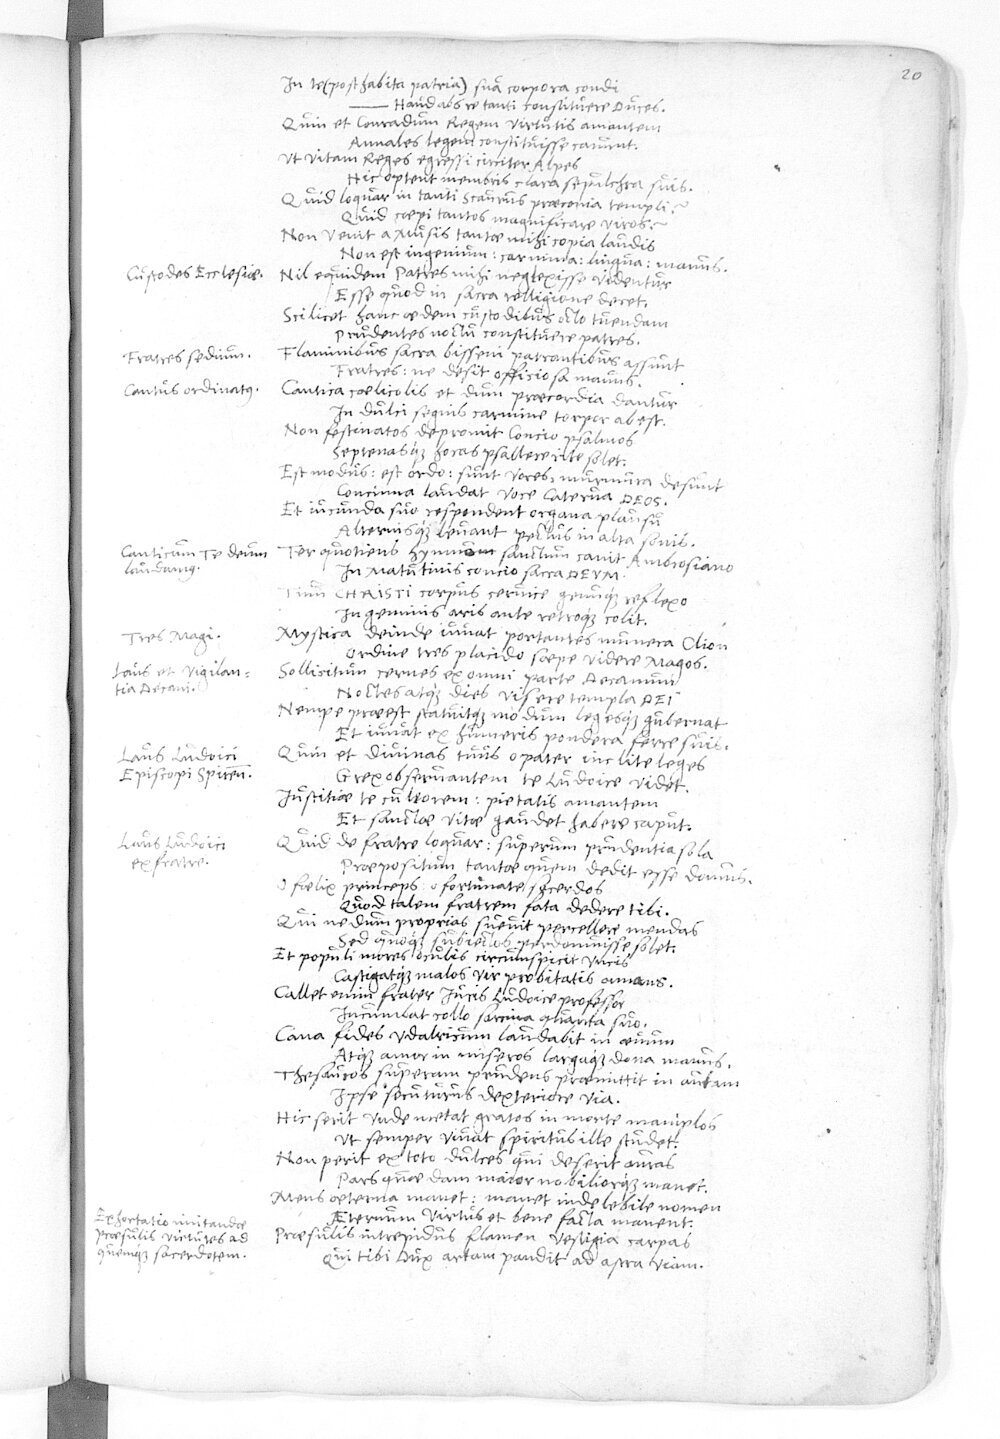 20
In te (posthabita patria) sua corpora condi
Haud abs re tanti constituere Duces.
Quin et Conradum Regem virtutis amantem
Annales legem constituisse canunt.
Ut vitam Reges egressi circiter Alpes
Hic optent membris clara sepulchra suis.
Quid loquar in tanti Scaurus præconia templi?
Quid cœpi tantos magnificare viros?
Non venit a Musis tantæ mihi copia laudis
Non est ingenium: carmina: lingua: manus.
Custodes Ecclesiæ.
Nil equidem Patres mihi neglexisse videntur
Esse quod in sacra relligione decet.
Scilicet hanc ædem custodibus octo tuendam
Prudentes noctu constituere patres.
Fratres sedium.
Flaminibus sacra bisseni patrantibus assunt
Fratres: ne desit officiosa manus.
Cantus ordinatꝰ.
Cantica cœlicolis et dum præcordia dantur
In dulci segnis carmine torpor abest.
Non festinatos depromit Concio psalmos
Septenasqꝫ horas psallere rite solet.
Est modus: est ordo: sunt voces, murmura desunt
Concinna laudat voce Caterva DEOS.
Et iucunda suo respondent organa plausu
Alternisqꝫ levant pectus in alta sonis.
Canticum Te deum
laudamꝰ.
Ter quotiens hymnum sanctum canit Ambrosiano
In Matutinis concio sacra DEUM.
Tum CHRISTI corpus cervice genuqꝫ reflexo
In geminis aris ante retroqꝫ colit.
Tres Magi.
Mystica deinde iuvat portantes munera Olion
Ordine tres placido sæpe videre Magos.
Laus et Vigilan-
tia Decani.
Sollicitum cernes ex omni parte Decanum
Noctes atqꝫ dies visere templa DEI
Nempe præest statuitqꝫ modum legesqꝫ gubernat
Et iuvat ex humeris pondera ferre suis.
Laus Ludoici
Episcopi Spiren̄.
Quin et divinas tuus o pater inclite leges
Grex observantem te Ludoice videt.
Iustitiæ te cultorem: pietatis amantem
Et sanctæ vitæ gaudet habere caput.
Laus Ludoici
ex fratre.
Quid de fratre loquar: superum prudentia sola
Præpositum tantæ quem dedit esse domus.
O fœlix princeps: o fortunate sacerdos
Quod talem fratrem fata dedere tibi.
Qui nedum proprias suevit percellere mendas
Sed quoqꝫ subiectos perdomuisse solet.
Et populi mores oculis circumspicit uncis
Castigatqꝫ malos vir probitatis amans.
Callet enim frater Iuris Ludoice professor
Incumbat collo sarcina quanta suo.
Cana fides Udalricum laudabit in ævum
Atqꝫ amor in miseros largaqꝫ dona manus.
Thesauros superam prudens præmittit in aulam
Ipse secuturus dexteriore via.
Hic serit unde metat gratos in morte maniplos
Ut semper vivat spiritus ille studet.
Non perit ex toto dulces qui deserit auras
Pars quædam maior nobiliorqꝫ manet.
Mens æterna manet: manet indelebile nomen
Æternum virtus et bene facta manent.
Exhortatio imitandæ
præsulis virtutes ad
quemqꝫ sacerdotem.
Præsulis intrepidus flamen vestigia carpas
Qui tibi Dux artam pandit ad astra viam.